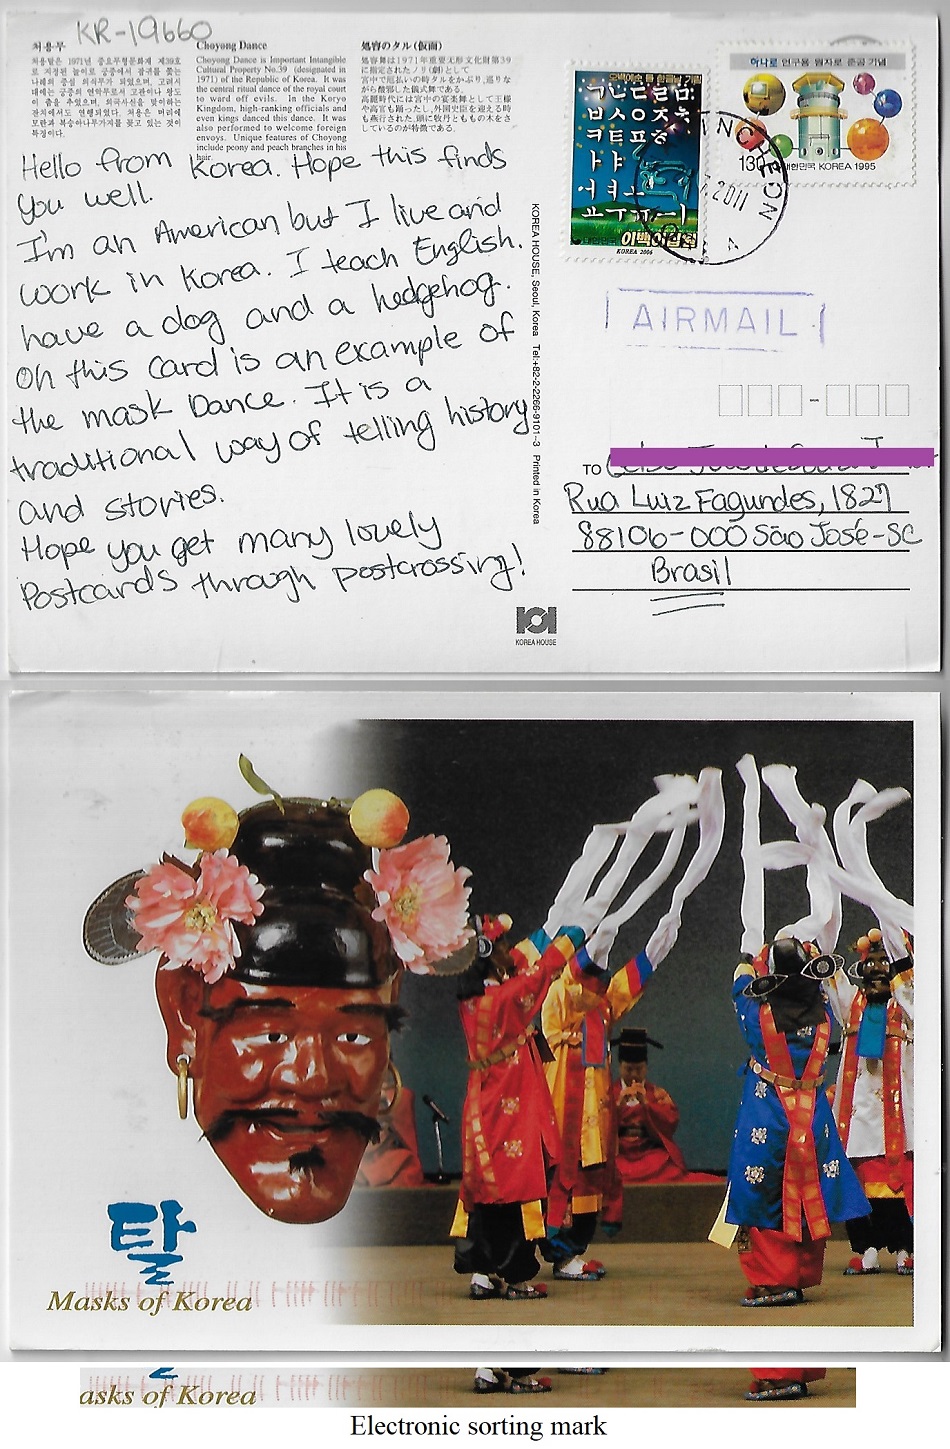 KR-19660
처용무
처용탈은 1971년 중요무형문화재 제39호
로 지정된 놀이로 궁중에서 잡귀를 쫓는
나례의 중심 의식무가 되었으며, 고려시
대에는 궁중의 연학무로서 고관이나 왕도
이 춤을 추었으며, 외국사신을 맞이하는
잔치에서도 연행되었다. 처용은 머리에
모란과 복숭아나무가지를 꽂고 있는 것이
특징이다.
Choyong Dance
Choyong Dance is Important Intangible
Cultural Property No.39 (designated in
1971) of the Republic of Korea. It was
the central ritual dance of the royal court
to ward off evils. In the Koryo
Kingdom, high-ranking officials and
even kings danced this dance. It was
also performed to welcome foreign
envoys. Unique features of Choyong
include peony and peach branches in his
hair.
処容のタル(仮面)
処容舞は1971年重要文形文化財第39
に指定されたノリ(劇)として
宮中で厄払いの時タルをかぶり,巡りな
がら酸邪した儀式舞である.
高麗時代には宮中の宴楽舞として王様
や高官も踊ったし,外国史臣を迎える時
も燕行された.頭に牡丹とももの木をさ
しているのが特徴である.
Hello from Korea. Hope this finds
you well.
I'm an American but I live and
work in Korea. I teach English.
have a dog and a hedgehog.
On this card is an example of
the mask Dance. It is a
traditional way of telling history
and stories.
Hope you get many lovely
Postcards through postcrossing!
KOREA HOUSE, Seoul, Korea Tel:+82-2-2266-9101~3 Printed in Korea
KOREA HOUSE
오백예순 돌 한글날 기념
ㄱㄴㄷㄹㅁ
ㅂㅅㅇㅈㅊ
ㅋㅌㅍㅎ
ㅏㅑ
ㅓㅕㅗ
ㅛㅜㅠㅡㅣ
대한민국
이백이십원
KOREA 2006
하나로 연구용 원자로 준공 기념
130
대한민국 KOREA 1995
INCHEON
2011
AIRMAIL
TO
Rua Luiz Fagundes, 1827
88106-000 São José-SC
Brasil
탈
Masks of Korea
asks of Korea
Electronic sorting mark